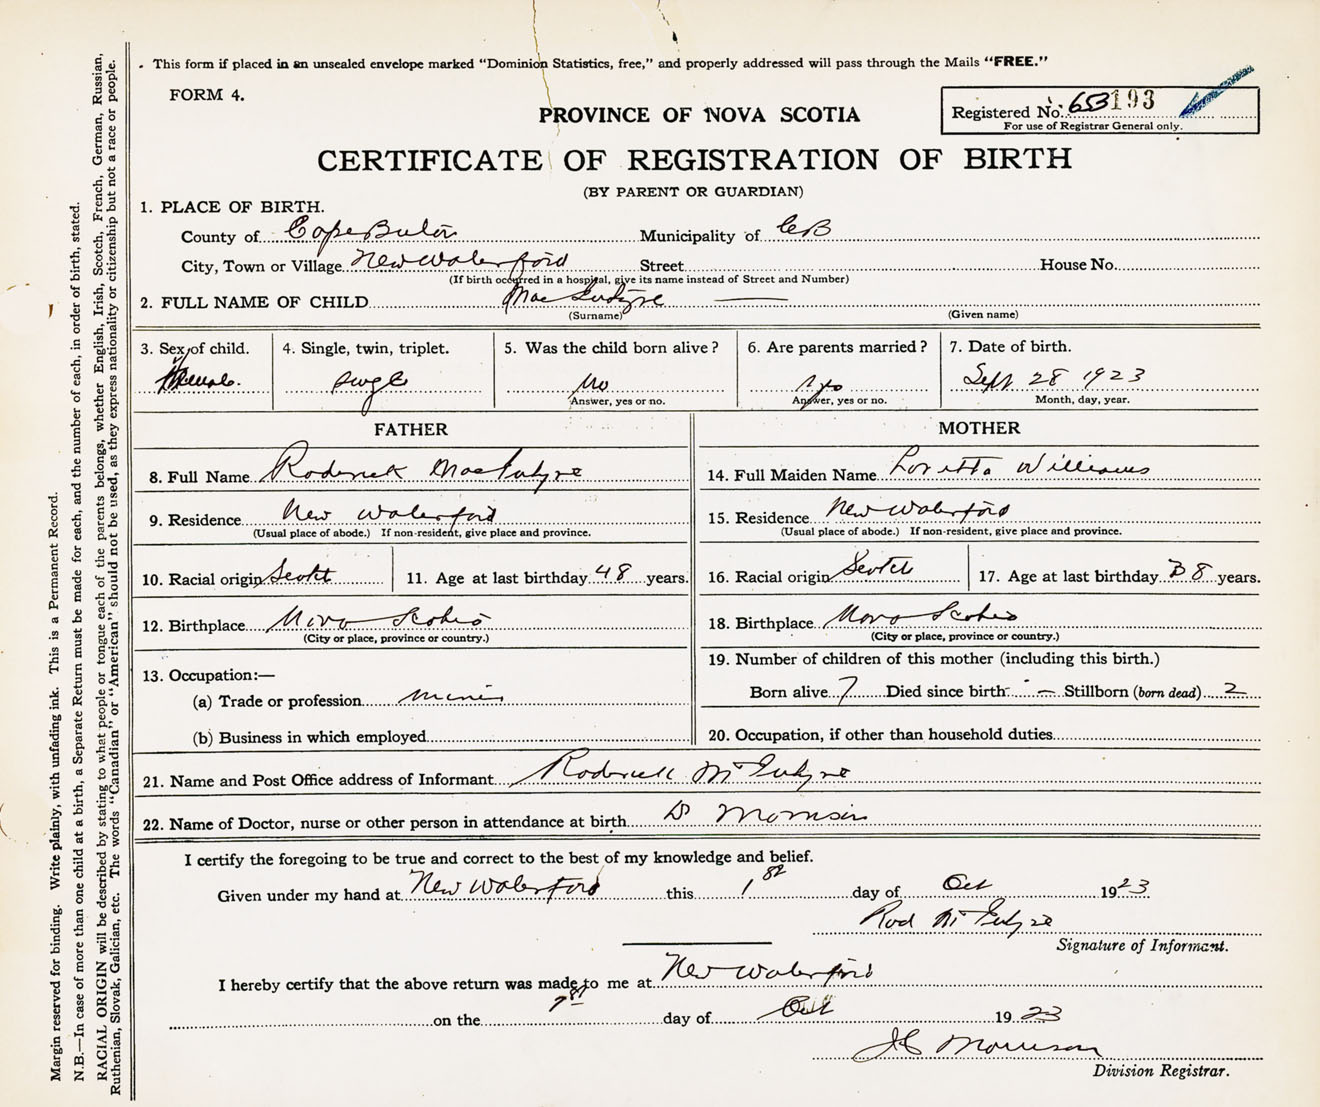 This form if placed in an unsealed envelope marked "Dominion Statistics, free," and properly addressed will pass through the Mails "FREE."
FORM 4.
PROVINCE OF NOVA SCOTIA
Registered No. 653193
For use of Registrar General only.
CERTIFICATE OF REGISTRATION OF BIRTH
(BY PARENT OR GUARDIAN)
1. PLACE OF BIRTH.
County of Cape Breton Municipality of CB
City, Town or Village New Waterford Street House No.
(If birth occurred in a hospital, give its name instead of Street and Number)
2. FULL NAME OF CHILD MacIntyre —
(Surname) (Given name)
3. Sex of child. 4. Single, twin, triplet. 5. Was the child born alive? 6. Are parents married? 7. Date of birth.
single no yes Sept 28 1923
Answer, yes or no. Answer, yes or no. Month, day, year.
FATHER MOTHER
8. Full Name Roderick MacIntyre 14. Full Maiden Name Loretta Williams
9. Residence New Waterford 15. Residence New Waterford
(Usual place of abode.) If non-resident, give place and province. (Usual place of abode.) If non-resident, give place and province.
10. Racial origin Scotch 11. Age at last birthday 48 years. 16. Racial origin Scotch 17. Age at last birthday 38 years.
12. Birthplace Nova Scotia 18. Birthplace Nova Scotia
(City or place, province or country.) (City or place, province or country.)
13. Occupation:— 19. Number of children of this mother (including this birth.)
(a) Trade or profession miner Born alive 7 Died since birth — Stillborn (born dead) 2
(b) Business in which employed 20. Occupation, if other than household duties
21. Name and Post Office address of Informant Roderick McIntyre
22. Name of Doctor, nurse or other person in attendance at birth Dr Morrison
I certify the foregoing to be true and correct to the best of my knowledge and belief.
Given under my hand at New Waterford this 1st day of Oct 1923
Rod McIntyre
Signature of Informant.
I hereby certify that the above return was made to me at New Waterford
on the day of Oct 1923
Morrison
Division Registrar.
Margin reserved for binding. Write plainly, with unfading ink. This is a Permanent Record.
N.B.—In case of more than one child at a birth, a Separate Return must be made for each, and the number of each, in order of birth, stated.
RACIAL ORIGIN will be described by stating to what people or tongue each of the parents belongs, whether English, Irish, Scotch, French, German, Russian,
Ruthenian, Slovak, Galician, etc. The words "Canadian" or "American" should not be used, as they express nationality or citizenship but not a race or people.